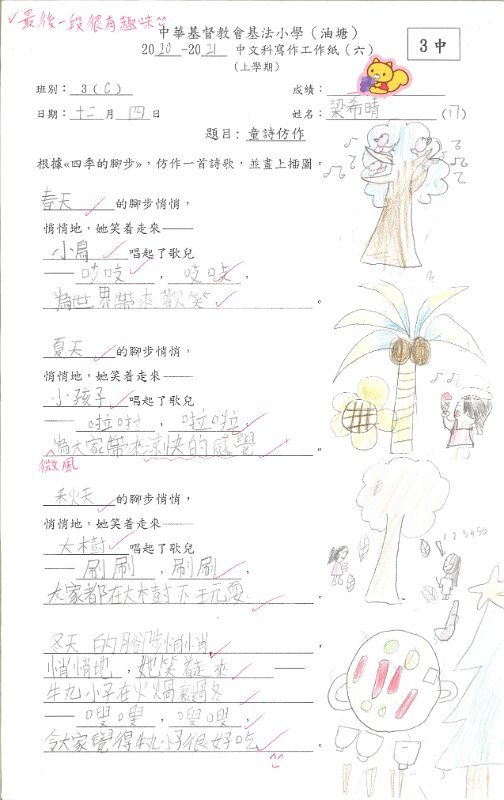 ✓最後一段很有趣味
中華基督教會基法小學（油塘）
2020-2021 中文科寫作工作紙（六）
（上學期）
3中
班別：3（C）
成績：
日期：十二月四日
姓名：梁希晴（17）
題目：童詩仿作
根據«四季的腳步»，仿作一首詩歌，並畫上插圖。
春天的腳步悄悄，
悄悄地，她笑着走來——
小鳥唱起了歌兒
——吱吱，吱吱，
為世界帶來歡笑。
夏天的腳步悄悄，
悄悄地，她笑着走來——
小孩子唱起了歌兒
——啦啦，啦啦，
為大家帶來涼快的感覺。
微風
秋天的腳步悄悄，
悄悄地，她笑着走來——
大樹唱起了歌兒
——刷刷，刷刷，
大家都在大樹下玩耍。
1 2 3 4 5 0
冬天的腳步悄悄
悄悄地，她笑着走來——
牛丸小子在火鍋裏
——嗖嗖，嗖嗖，
令大家覺得牛丸小子很好吃。